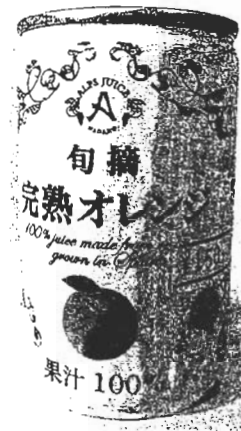 ALPS JUICE
A
NAGANO
旬摘
完熟オレンジ
100% juice made from
grown in
果汁 100%